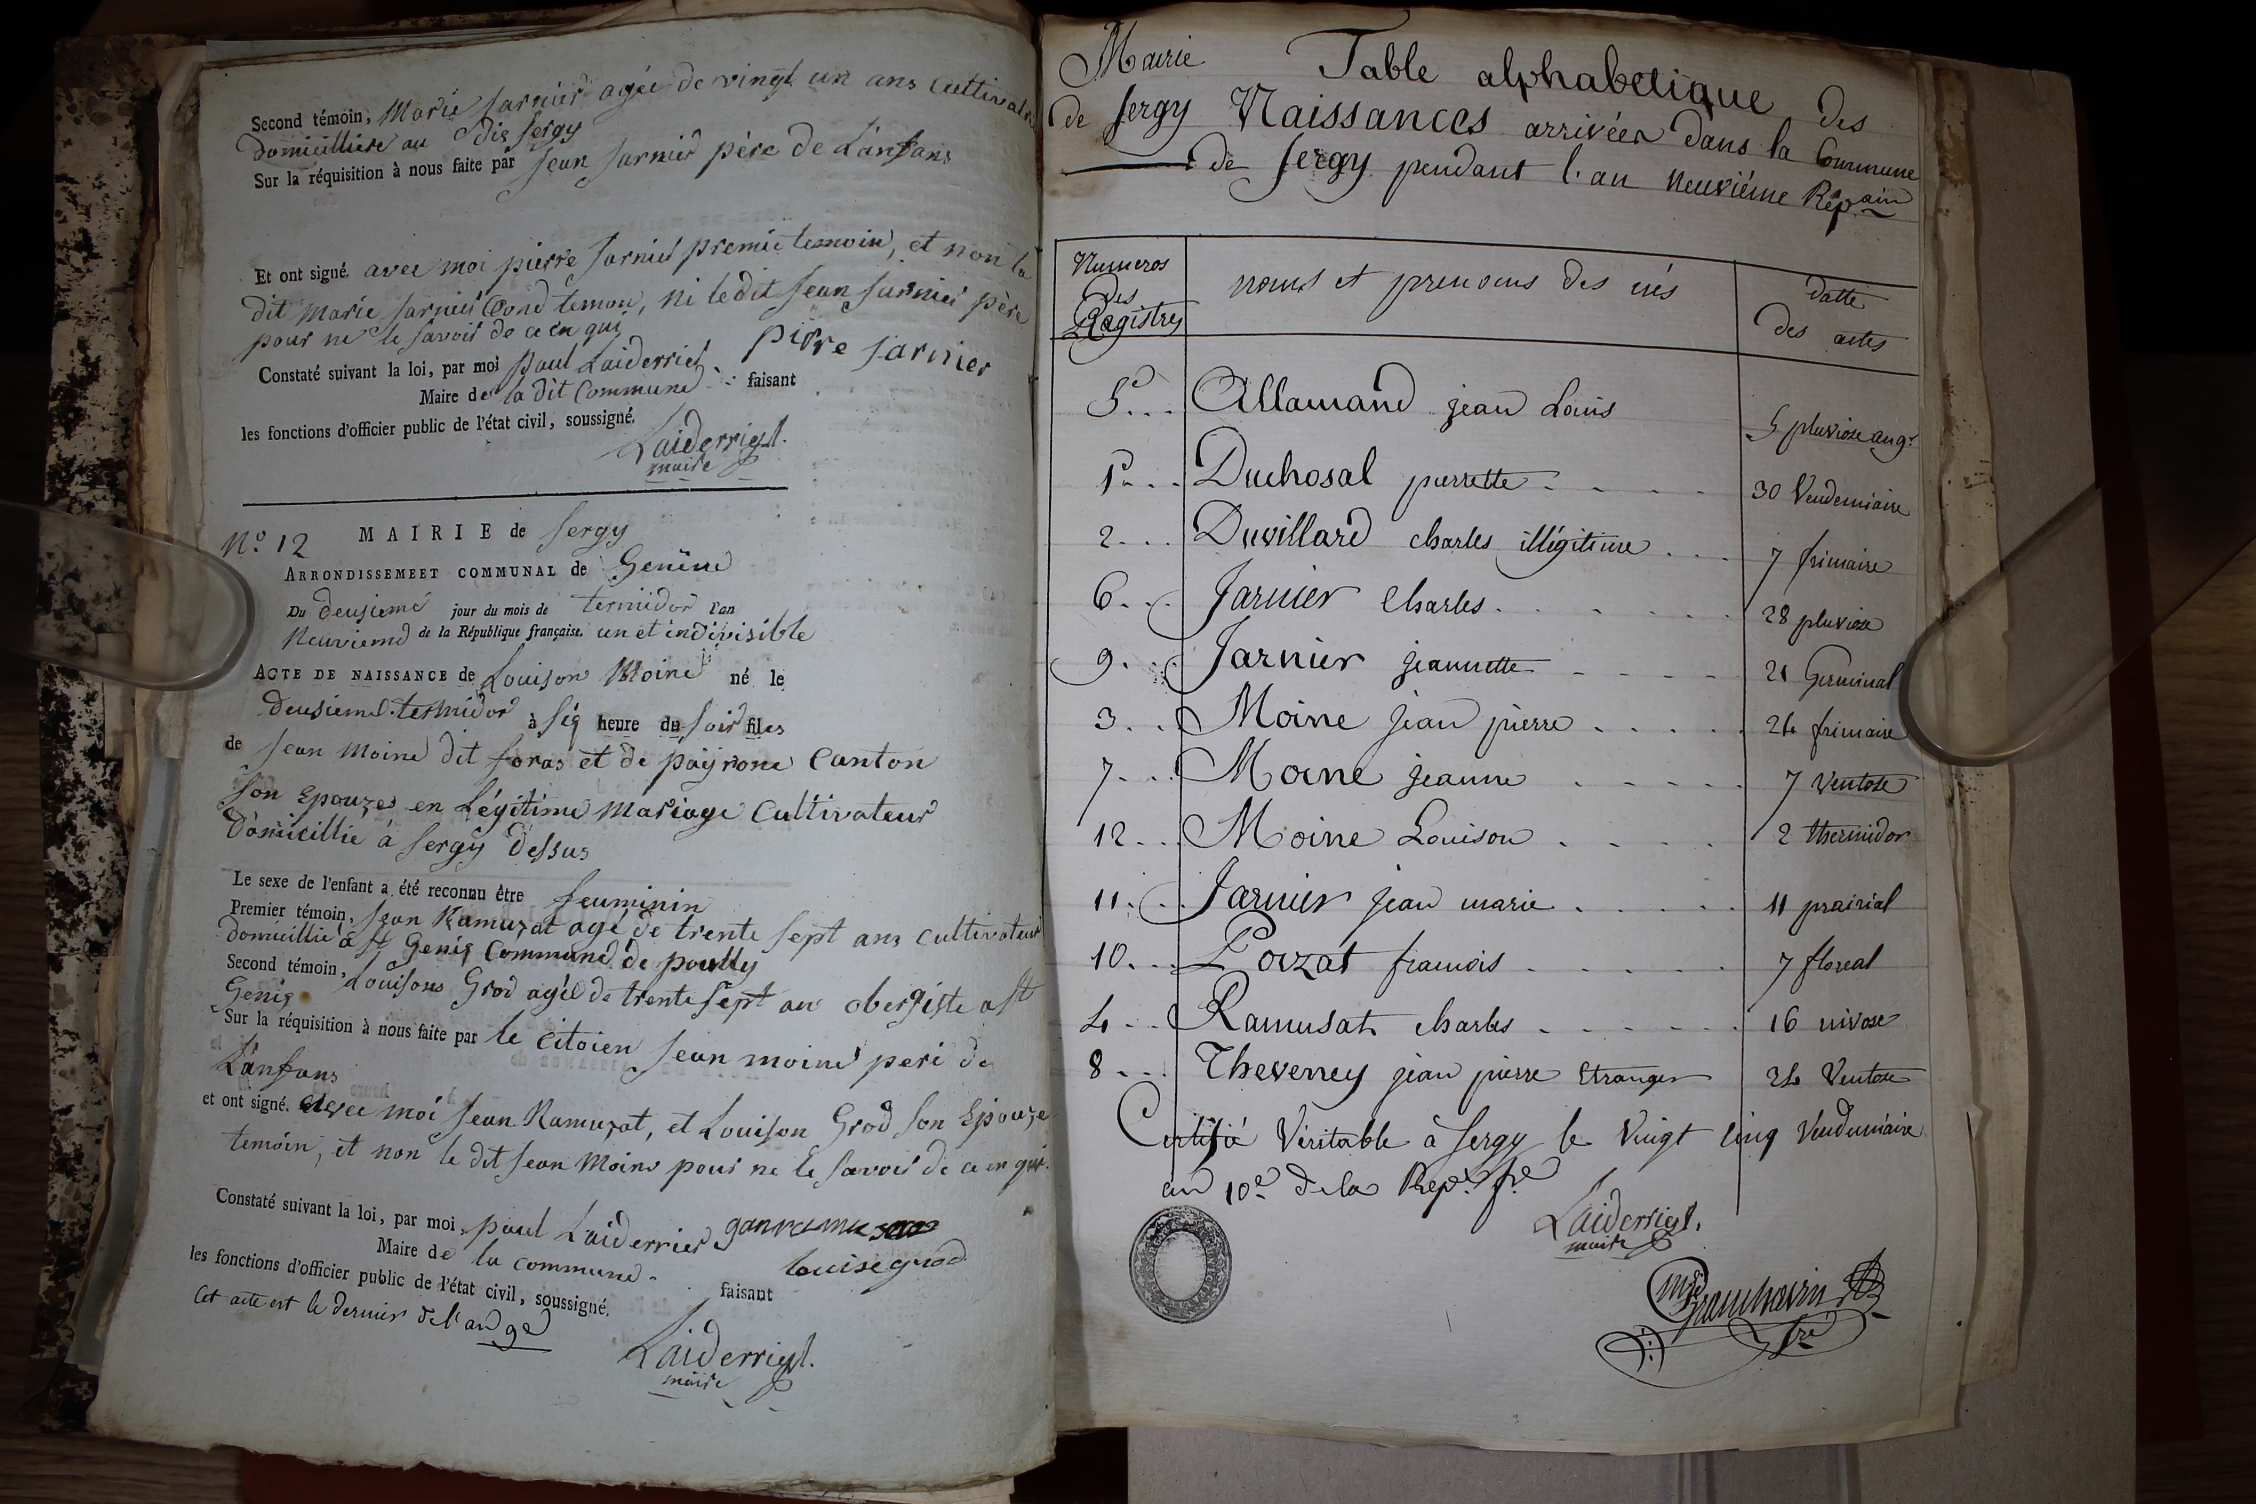 Second témoin, Marie Jarnier agée de vingt un ans cultivatrice
domicilliere au dis Sergy
Sur la réquisition à nous faite par Jean Jarnier père de L'anfans
Et ont signé. avec moi pierre Jarnier premie temoin, et non la
dit Marie Jarnier cond temou, ni le dit Jean Jarnier père
pour ne le savoir de ce en qui
pirre Jarnier
Constaté suivant la loi, par moi paul Laiderrier
Maire de la dit Commune faisant
les fonctions d'officier public de l'état civil, soussigné.
Laiderrier.
maire
N.º 12 MAIRIE de Sergy
ARRONDISSEMEET COMMUNAL de Geneve
Du deusieme jour du mois de termidor l'an
Neuvieme de la République française. un et indivisible
ACTE DE NAISSANCE de Louison Moine né le
deusieme termidor à sis heure du soir filles
de Jean Moine dit foras et de payrone Canton
son Epouzes en Légitime Mariage Cultivateur
Domicillié à Sergy Dessus
Le sexe de l'enfant a été reconnu être feuminin
Premier témoin, Jean Ramuzat agé de trente sept ans cultivateur
domicillié a st Genis Commune de poully
Second témoin, Louisons Grod agée de trente sept an obergiste a st
Genis
Sur la réquisition à nous faite par le citoien Jean moine peri de
L'anfans
et ont signé. avec moi Jean Ramuzat, et Louison Grod son Epouze
temoin, et non le dit Jean Moine pour ne le savoir de ce en qui.
Constaté suivant la loi, par moi, paul Laiderrier
Maire de la commune faisant
louise grod
les fonctions d'officier public de l'état civil, soussigné.
Cet acte est le dernier de l'an 9e
Laiderrier.
maire
Mairie
de Sergy
Table alphabetique des
Naissances arrivées dans la Commune
de Sergy pendant l'an neuviéme Rép.aine
Numeros des Registres noms et prenoms des nés datte des actes
5... Allamand jean Louis 5 pluviose an 9e
1er... Duchosal pierrette 30 Vendemiaire
2... Duvillard charles illégitime... 7 frimaire
6... Jarnier Charles 28 pluviose
9... Jarnier jeannette 21 Germinal
3... Moine jean pierre 24 frimaire
7... Moine jeanne 7 ventose
12... Moine Louison 2 thermidor
11... Jarnier jean marie 11 prairial
10... Poizat francois 7 floreal
4... Ramusat charles 16 nivose
8... Theveney jean pierre Etranger 24 Ventose
Certifié Véritable à Sergy le Vingt cinq Vendemiaire
an 10e de la Rep.e fr.e
Laiderrier.
maire